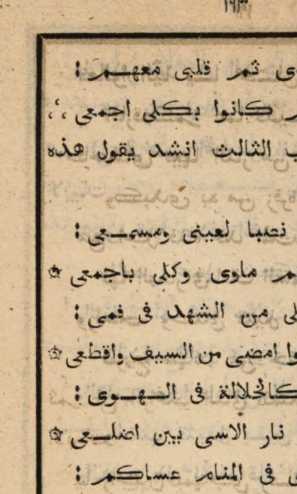 ١٩٣
ثم قلبى معهم :
كانوا بكلى اجمعى
الثالث انشد يقول هذه
نصبا لعينى ومسمعى :
ماوى وكلى باجمعى
من الشهد فى فمى :
امضى من السيف واقطعى
كالخلالة فى الهوى :
نار الاسى بين اضلعى
فى المنام عساكم :